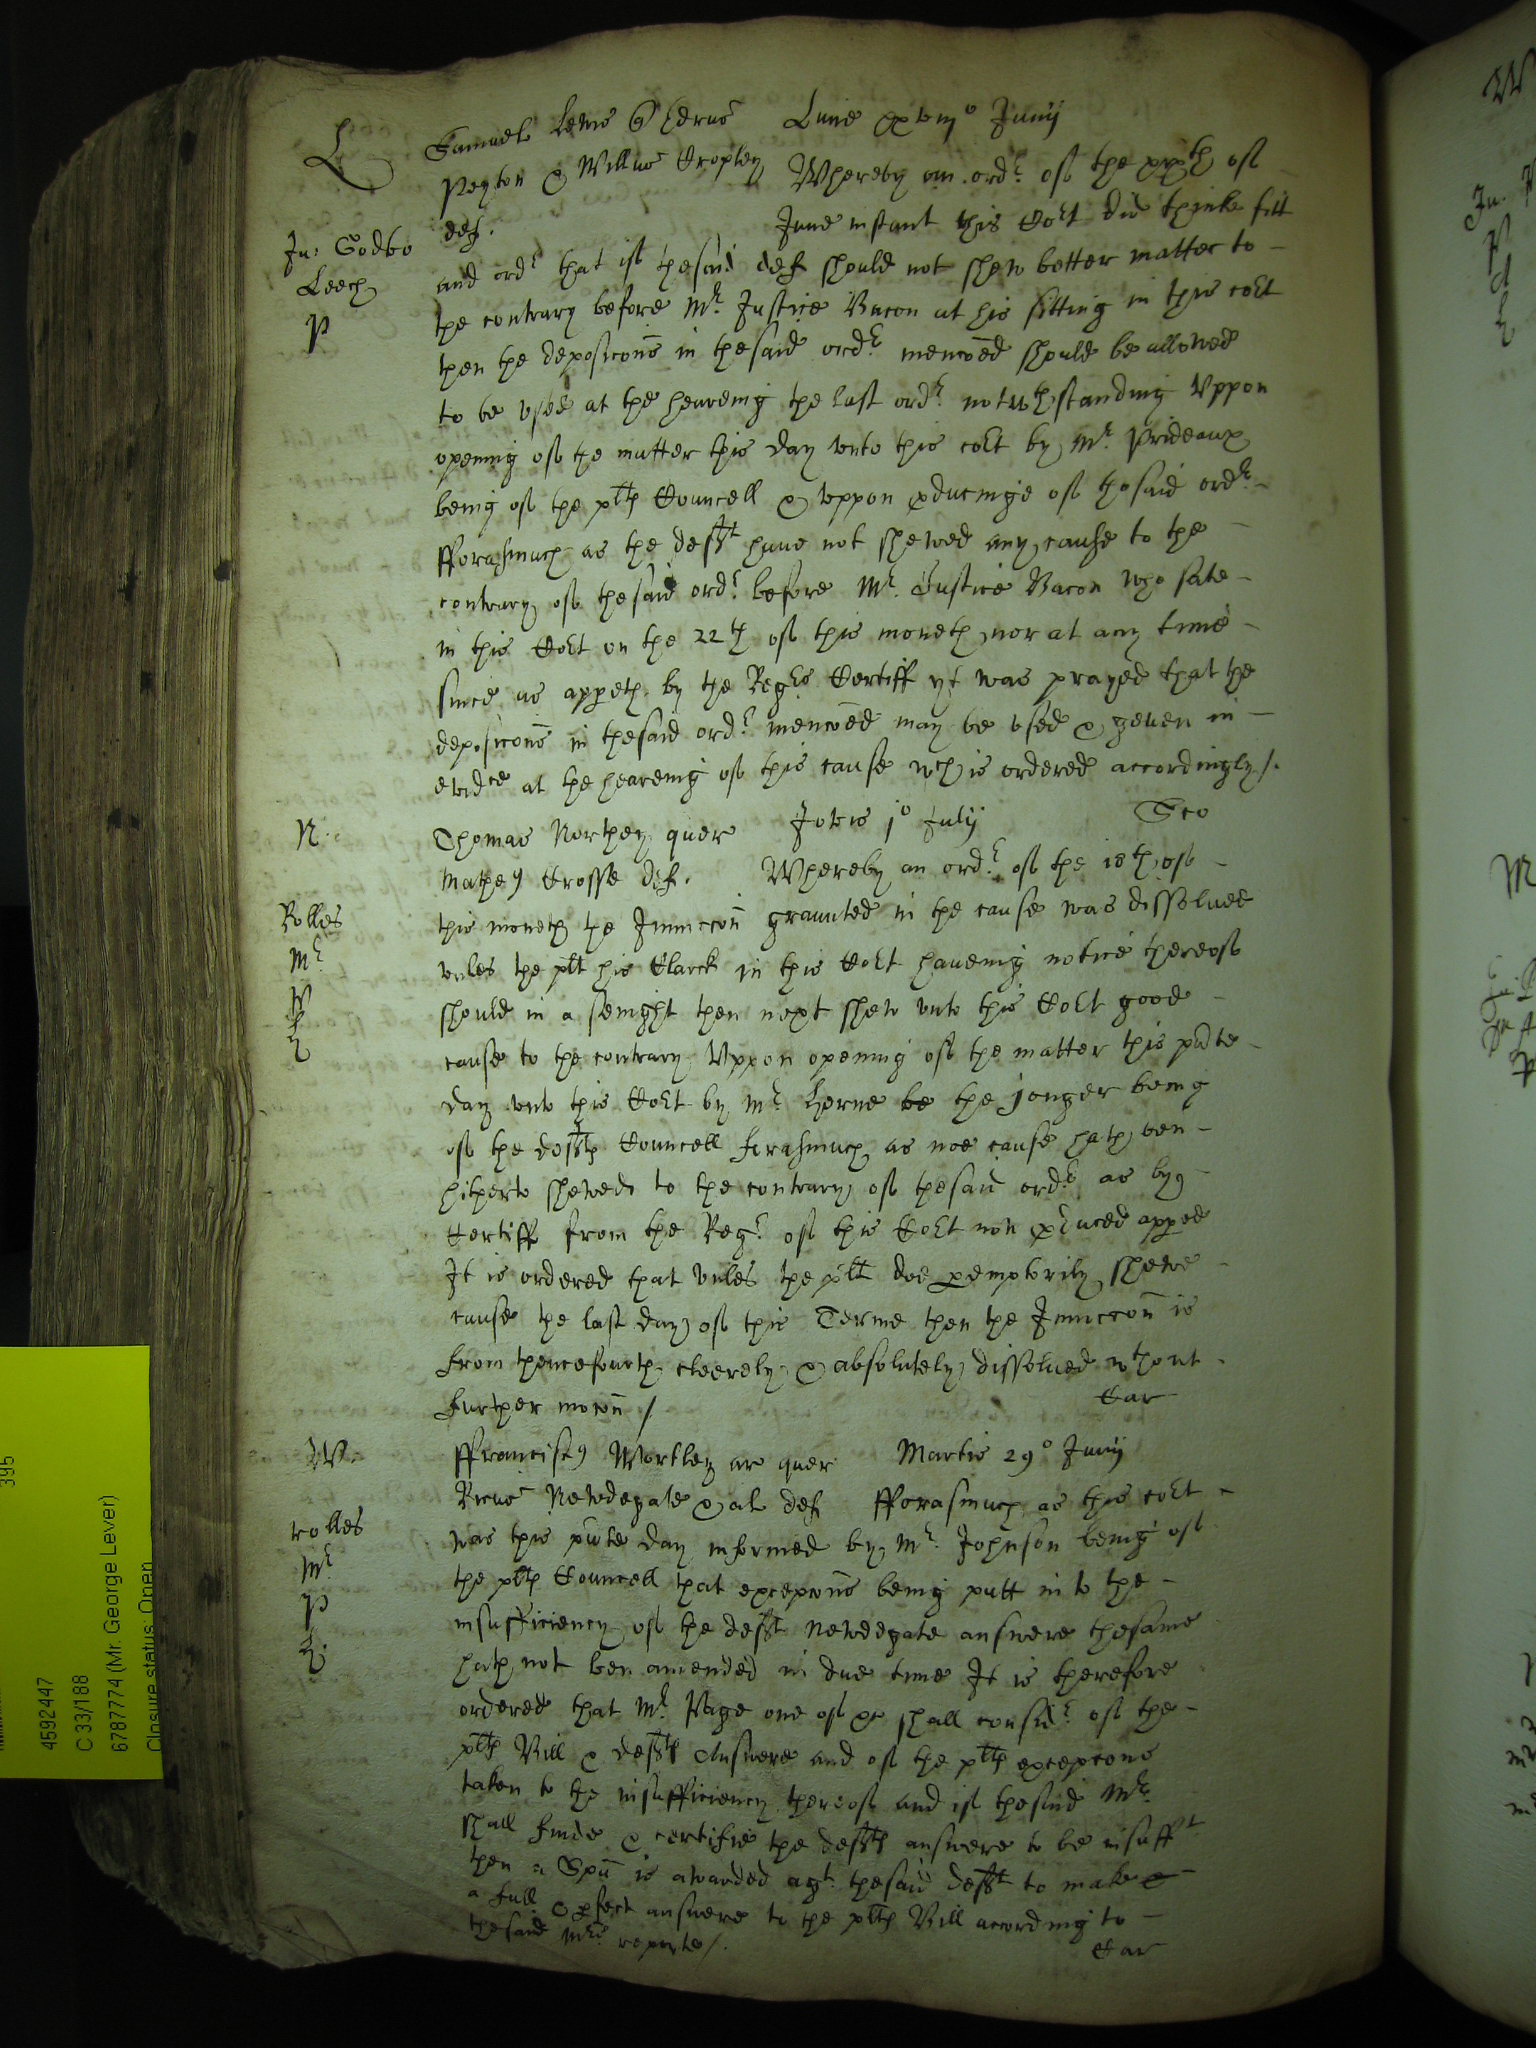 L Samuel Lewis
Peyton & Willus Cropley
def.
Lune xxviij° Junij
Whereby an ordr of the xxth of
June instant this Cort did thinke fitt
Jn: Godbo
Leech
P
and ordr that if thesaid def should not shew better matter to
the contrary before Mr Justice Bacon at his sitting in this cort
then the deposicons in thesaid ordr mencoed should be allowed
to be used at the heareing the last ordr notwthstanding Uppon
opening of the matter this day unto this cort by Mr Prideaux
being of the plts Councell & uppon pducinge of thesaid ordr
fforasmuch as the defts have not shewed any cause to the
contrary of thesaid ordr before Mr Justice Bacon who sate
in this Cort on the 22th of this moneth nor at any time
since as appeth by the Regrs Certiff yt was prayed that the
deposicons in thesaid ordr mencoed may be used & geven in
evidce at the heareing of this cause wch is ordered accordingly /.
N. Thomas Northey quer
Mathe9 Crosse def.
Jovis j° Julij
Sco
Whereby an ordr of the 18th of
Rolles
Mr
P
this moneth the Iniuccon graunted in the cause was dissolued
unles the plt his Clarck in this Cort haueing notice thereof
should in a senight then next shew unto this Cort good
cause to the contrary Uppon opening of the matter this pnte
day unto this Cort by Mr Herne be the jonger being
of the defts Councell forasmuch as noe cause hath ben
hitherto shewed to the contrary of thesaid ordr as by
Certiff from the Regr of this Cort now pduced apped
It is ordered that unles the plt doe pemptorily shewe
cause the last day of this Terme then the Iniuccon is
from thencefourth cleerely & absolutely dissolued wthout
further mocon /
Car
W. ffrancis9 Wortley ar quer
Ricus Newdegate & al def
Martis 29° Junij
fforasmuch as this cort
rolles
Mr
P
was this pnte day informed by Mr Johnson being of
the plts Councell that excepcons being putt in to the
insufficiency of the deft Newdegate answere thesame
hath not ben amended in due time It is therefore
ordered that Mr Page one of &c shall considr of the
plts Bill & defts Answere and of the plts excepcons
taken to the insufficiency thereof and if thesaid Mr
shall finde & certifie the defts answere to be insufft
then a Spa is awarded agt thesaid deft to make
a full & pfect answere to the plts Bill according to
thesaid Mrs reporte /.
Car
395
4592447
C 33/188
6787774 (Mr. George Lever)
Closure status: Open